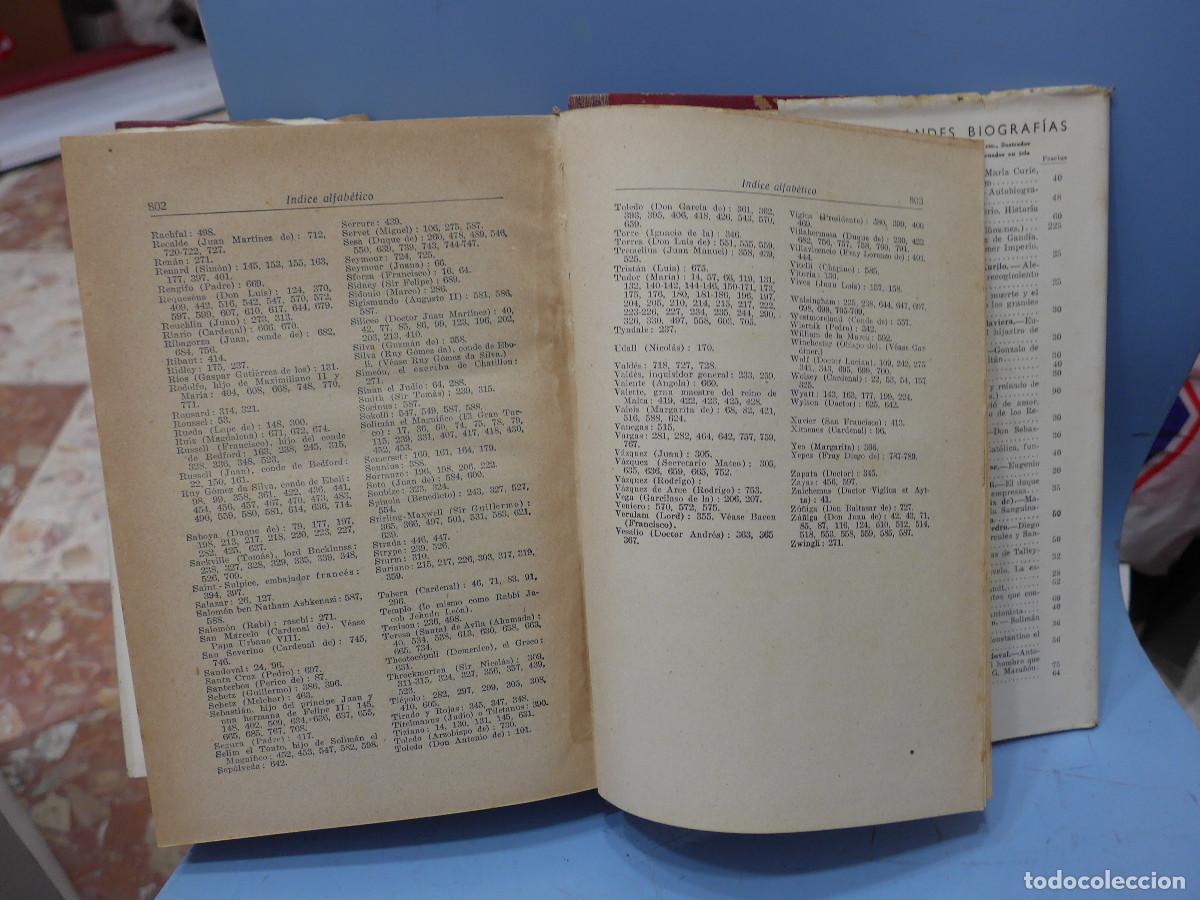 802
Indice alfabético
Rachfal: 498.
Recalde (Juan Martínez de): 712,
720-722, 727.
Renán: 271.
Renard (Simón): 145, 153, 155, 163,
177, 397, 401.
Rengifo (Padre): 669.
Requeséns (Don Luis): 124, 370,
409, 442, 516, 542, 547, 570, 572,
597, 599, 607, 610, 617, 644, 679.
Reuchlin (Juan): 273, 313.
Riario (Cardenal): 666, 670.
Ribagorza (Juan, conde de): 682,
684, 756.
Ribaut: 414.
Ridley: 175, 237.
Ríos (Gaspar Gutiérrez de los): 131.
Rodolfo, hijo de Maximiliano II y
María: 404, 608, 668, 748, 770,
771.
Ronsard: 314, 321.
Roussel: 53.
Rueda (Lope de): 148, 300.
Ruis (Magdalena): 671, 672, 674.
Russell (Francisco), hijo del conde
de Bedford: 163, 238, 245, 315,
328, 336, 348, 523.
Russell (Juan), conde de Bedford:
22, 150, 161.
Ruy Gómez da Silva, conde de Eboli:
98, 99, 358, 361, 422, 436, 441,
454, 456, 457, 467, 470, 473, 483,
490, 559, 580, 581, 614, 636, 714.
Saboya (Duque de): 79, 177, 197,
198, 213, 217, 218, 220, 223, 227,
282, 425, 637.
Sackville (Tomás), lord Bucklunss:
238, 327, 328, 329, 335, 339, 348,
526, 709.
Saint-Sulpice, embajador francés:
394, 397.
Salazar: 26, 127.
Salomón ben Natham Ashkenazi: 587,
588.
Salomón (Rabí) : raschi: 271.
San Marcelo (Cardenal de). Véase
Papa Urbano VIII.
San Severino (Cardenal de): 745,
746.
Sandoval: 24, 96.
Santa Cruz (Pedro): 697.
Santerbos (Perico de): 87.
Schetz (Guillermo): 386, 396.
Schetz (Melchor): 463.
Sebastián, hijo del príncipe Juan y
una hermana de Felipe II: 145,
148, 402, 509, 634-636, 637, 655,
665, 685, 767, 768.
Segura (Padre): 417.
Selim el Tonto, hijo de Solimán el
Magnífico: 452, 453, 547, 582, 598.
Sepúlveda: 642.
Serrure: 439.
Servet (Miguel): 106, 275, 587.
Sesa (Duque de): 260, 478, 489, 546,
550, 639, 739, 743, 744-747.
Seymour: 724, 725.
Seymour (Juana): 66.
Sforza (Francisco): 16, 64.
Sidney (Sir Felipe): 689.
Sidonio (Marco): 286.
Sigismundo (Augusto II): 581, 586,
587.
Silíceo (Doctor Juan Martínez): 40,
42, 77, 85, 86, 99, 123, 196, 202,
203, 213, 410.
Silva (Guzmán de): 358.
Silva (Ruy Gómez da), conde de Ebo-
li. (Véase Ruy Gómez da Silva.)
Simeón, el escriba de Chatillon:
271.
Sinan el Judío: 64, 288.
Smith (Sir Tomás): 239, 315.
Socinus: 587.
Sokolli: 547, 549, 587, 588.
Solimán el Magnífico (El Gran Tur-
co): 17, 36, 60, 74, 75, 78, 79,
115, 239, 331, 407, 417, 418, 430,
452, 453.
Somerset: 160, 161, 164, 179.
Sonnius: 388.
Sorranzo: 196, 198, 206, 222.
Soto (Juan de): 584, 600.
Soubize: 323, 324.
Spinula (Benedicto): 243, 327, 527,
554.
Stirling-Maxwell (Sir Guillermo):
365, 366, 497, 501, 531, 583, 621,
639.
Strada: 446, 447.
Strype: 239, 526.
Sturm: 310.
Suriano: 215, 217, 226, 303, 317, 319,
359.
Tabera (Cardenal): 46, 71, 83, 91,
296.
Templo (lo mismo como Rabbi Ja-
cob Jehudn León).
Tenison: 236, 498.
Teresa (Santa) de Avila (Ahumada):
40, 534, 538, 613, 630, 658, 663,
665, 734.
Theotocópuli (Domenico), el Greco:
631.
Throckmorton (Sir Nicolás): 309,
311-315, 324, 327, 356, 357, 439,
523.
Tiépolo: 282, 297, 299, 305, 308,
410, 605.
Tirado y Rojas: 345, 347, 348.
Titelmanus (Judío) o Tiletanus: 390.
Tiziano: 14, 130, 131, 145, 631.
Toledo (Arzobispo de): 730.
Toledo (Don Antonio de): 101.
Indice alfabético
803
Toledo (Don García de): 361, 362,
393, 395, 406, 418, 426, 543, 570,
659.
Torre (Ignacio de la): 346.
Torres (Don Luis de): 551, 535, 559.
Tremelius (Juan Manuel): 358, 439,
525.
Tristán (Luis): 675.
Tudor (María): 14, 57, 66, 119, 131,
132, 140-142, 144-146, 150-171, 173,
175, 176, 180, 181-186, 196, 197,
204, 205, 210, 214, 215, 217, 222,
223-226, 227, 234, 235, 244, 290,
326, 330, 497, 558, 603, 705.
Tyndale: 237.
Udall (Nicolás): 170.
Valdés: 718, 727, 728.
Valdés, inquisidor general: 233, 259.
Valente (Angola): 660.
Valerte, gran maestre del reino de
Malta: 419, 423, 425, 428.
Valois (Margarita de): 68, 82, 421,
516, 588, 624.
Vanegas: 515.
Vargas: 281, 282, 464, 642, 757, 759,
767.
Vázquez (Juan): 305.
Vázquez (Secretario Mateo): 305,
635, 636, 659, 665, 752.
Vázquez (Rodrigo):
Vázquez de Arce (Rodrigo): 753.
Vega (Garcilaso de la): 206, 207.
Veniero: 570, 572, 575.
Verulam (Lord): 355. Véase Bacon
(Francisco).
Vesalio (Doctor Andrés): 363, 365
367.
Viglius (Presidente): 380, 399, 400
460.
Villahermosa (Duque de): 230, 422
682, 756, 757, 758, 790, 791.
Villavicencio (Fray Lorenzo de): 401,
444.
Vitelli (Chapino): 595.
Vitoria: 130.
Vives (Juan Luis): 157, 158.
Walsingham: 225, 238, 644, 647, 697,
698, 699, 705-709.
Westmoreland (Conde de): 557.
Wiernik (Pedro): 342.
William de la Marca: 592.
Winchester (Obispo de). (Véase Gar-
diner.)
Wolf (Doctor Lucian): 109, 242, 275,
345, 343, 695, 699, 700.
Wolsey (Cardenal): 22, 53, 54, 157,
325.
Wyatt: 143, 163, 177, 199, 224.
Wylson (Doctor): 625, 642.
Xavier (San Francisco): 413.
Ximenes (Cardenal): 96.
Yes (Margarita): 396.
Yepes (Fray Diego de): 787-789.
Zapata (Doctor): 345.
Zayas: 456, 597.
Zuichemus (Doctor Viglius et Ayt-
ta): 41.
Zóñiga (Don Baltasar de): 727.
Zúñiga (Don Juan de): 42, 43, 71,
85, 87, 116, 124, 610, 512, 514,
518, 553, 558, 559, 585, 587.
Zwingli: 271.
ANDES BIOGRAFÍAS
cm., ilustrados
en tela
Pesetas
María Curie,
40
Autobiogra-
48
Historia
225
de Gandía.
mer Imperio.
25
Kurilo. — Ale-
recogimiento
25
muerte y el
los grandes
30
hijastro de
30
Gonzalo de
30
y reinado de
90
de amor.
de los Re-
Don Sebas-
30
Eugenio
El duque
empresas.
35
Sanguina-
Diego
rcules y San-
50
as de Talley-
52
28
60
40
Solimán
60
onstantino el
56
doval. — Anto-
El hombre que
75
G. Marañón.
64
todocoleccion